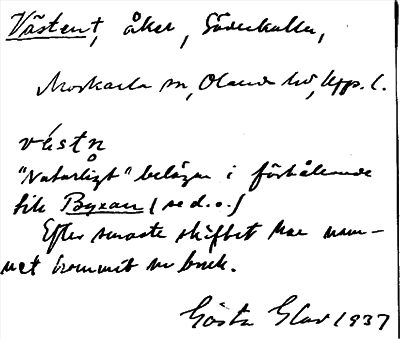 Västent, åker, Söderkulla,
Morkarla sn, Olands hd, Upp. l.
véstn
"Naturligt" belägen i förhållande
till Byxan (se d. o.)
Efter senaste skiftet har nam-
net kommit ur bruk.
Gösta Glav 1937